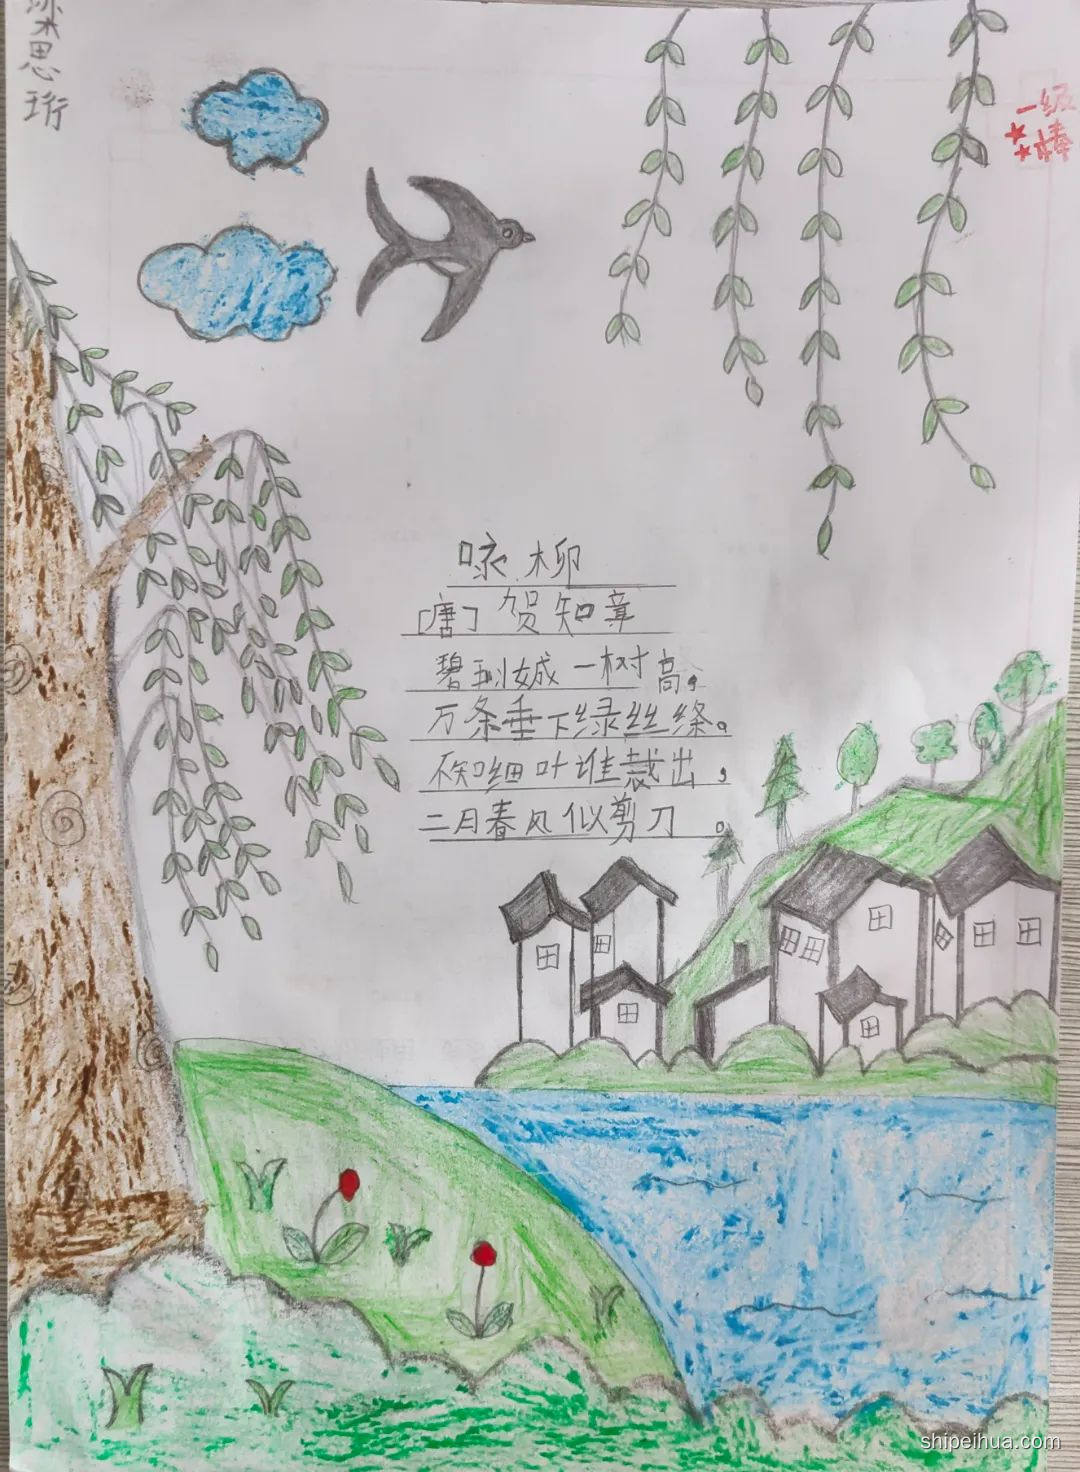 梁思珩
一级
棒
咏柳
[唐] 贺知章
碧玉妆成一树高，
万条垂下绿丝绦。
不知细叶谁裁出，
二月春风似剪刀。
shipeihua.com